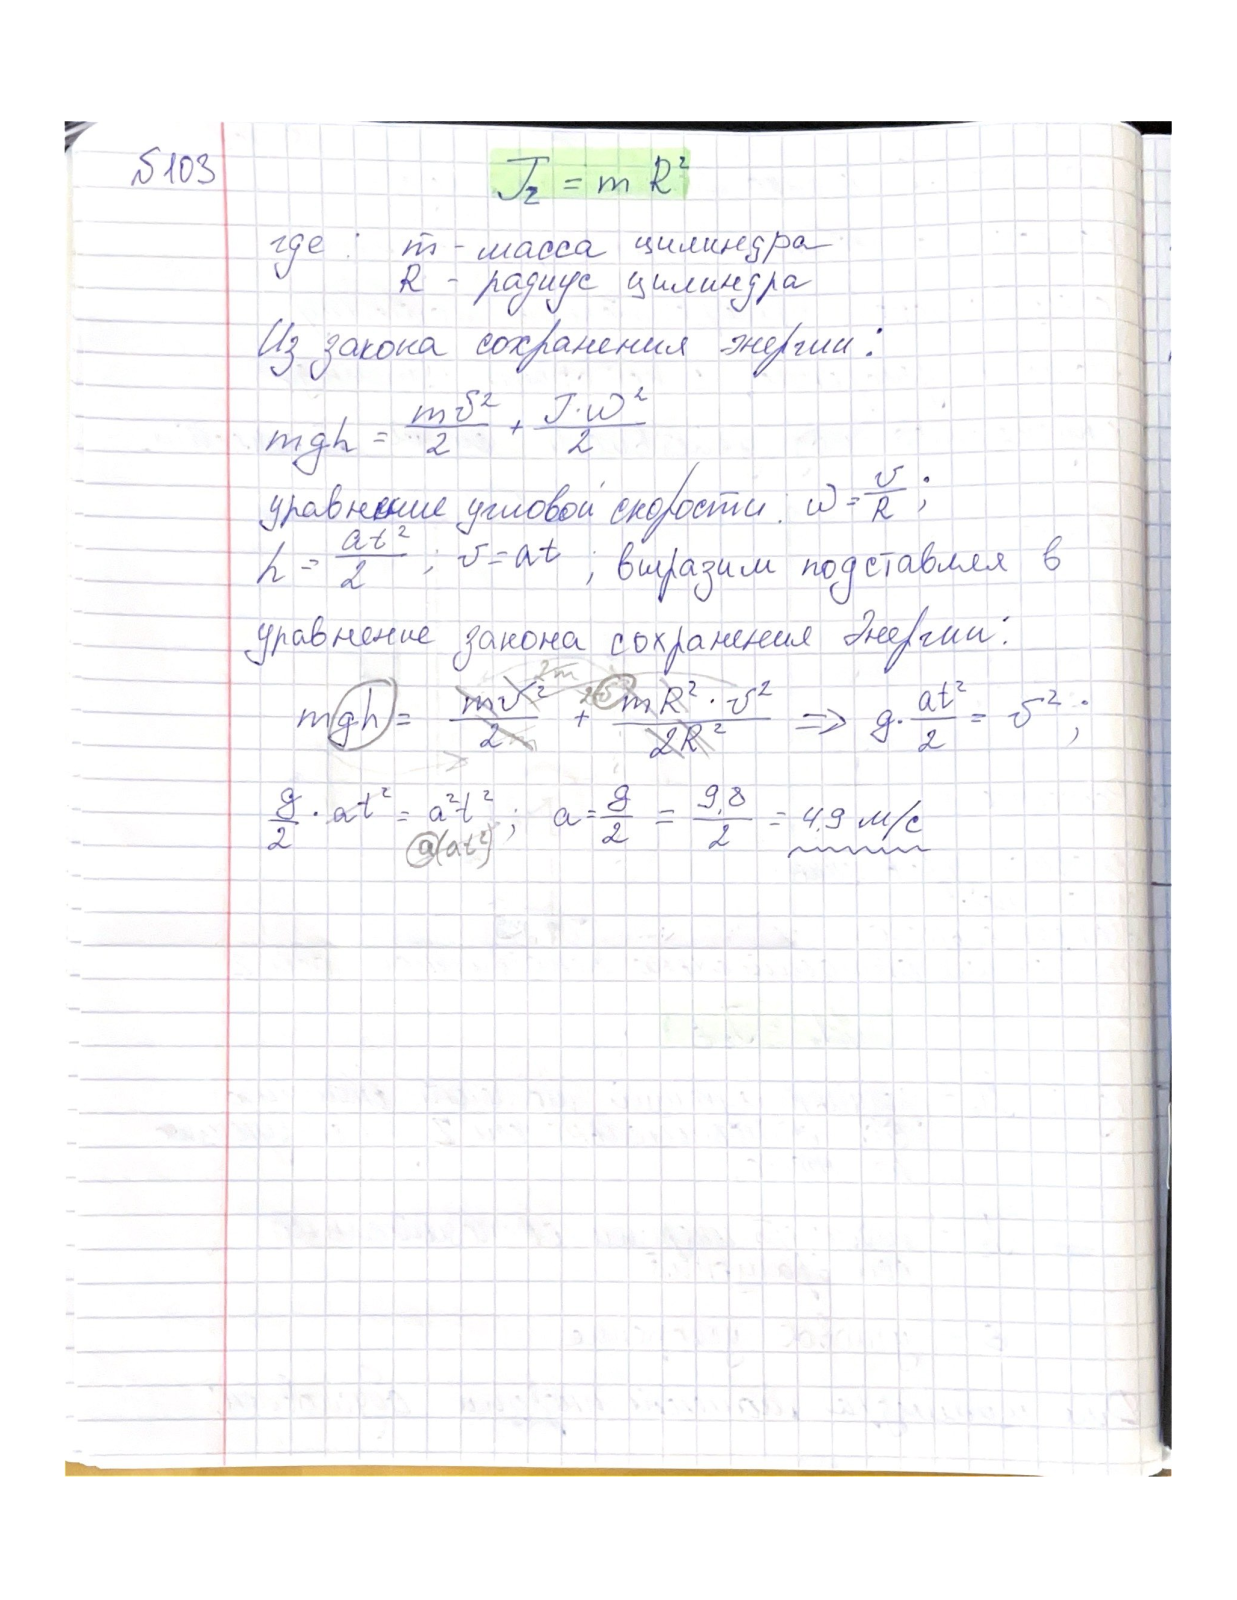 №103
J_z = m R²
где: m - масса цилиндра
R - радиус цилиндра
Из закона сохранения энергии:
mgh = mv²/2 + J·ω²/2
уравнение угловой скорости: ω = v/R;
h = at²/2; v = at; выразим подставляя в
уравнение закона сохранения энергии:
mgh = mv²/2 + mR²·v²/2R² => g·at²/2 = v²;
g/2·at² = a²t²; a = g/2 = 9,8/2 = 4,9 м/с
a(at²)